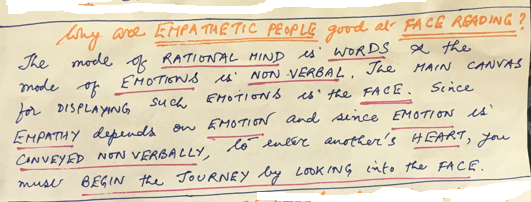 Why are EMPATHETIC PEOPLE good at FACE READING?
The mode of RATIONAL MIND is WORDS & the
mode of EMOTIONS is NON VERBAL. The MAIN CANVAS
for DISPLAYING SUCH EMOTIONS is the FACE. Since
EMPATHY depends on EMOTION and since EMOTION is
CONVEYED NON VERBALLY, to enter another's HEART, you
must BEGIN the JOURNEY by LOOKING into the FACE.